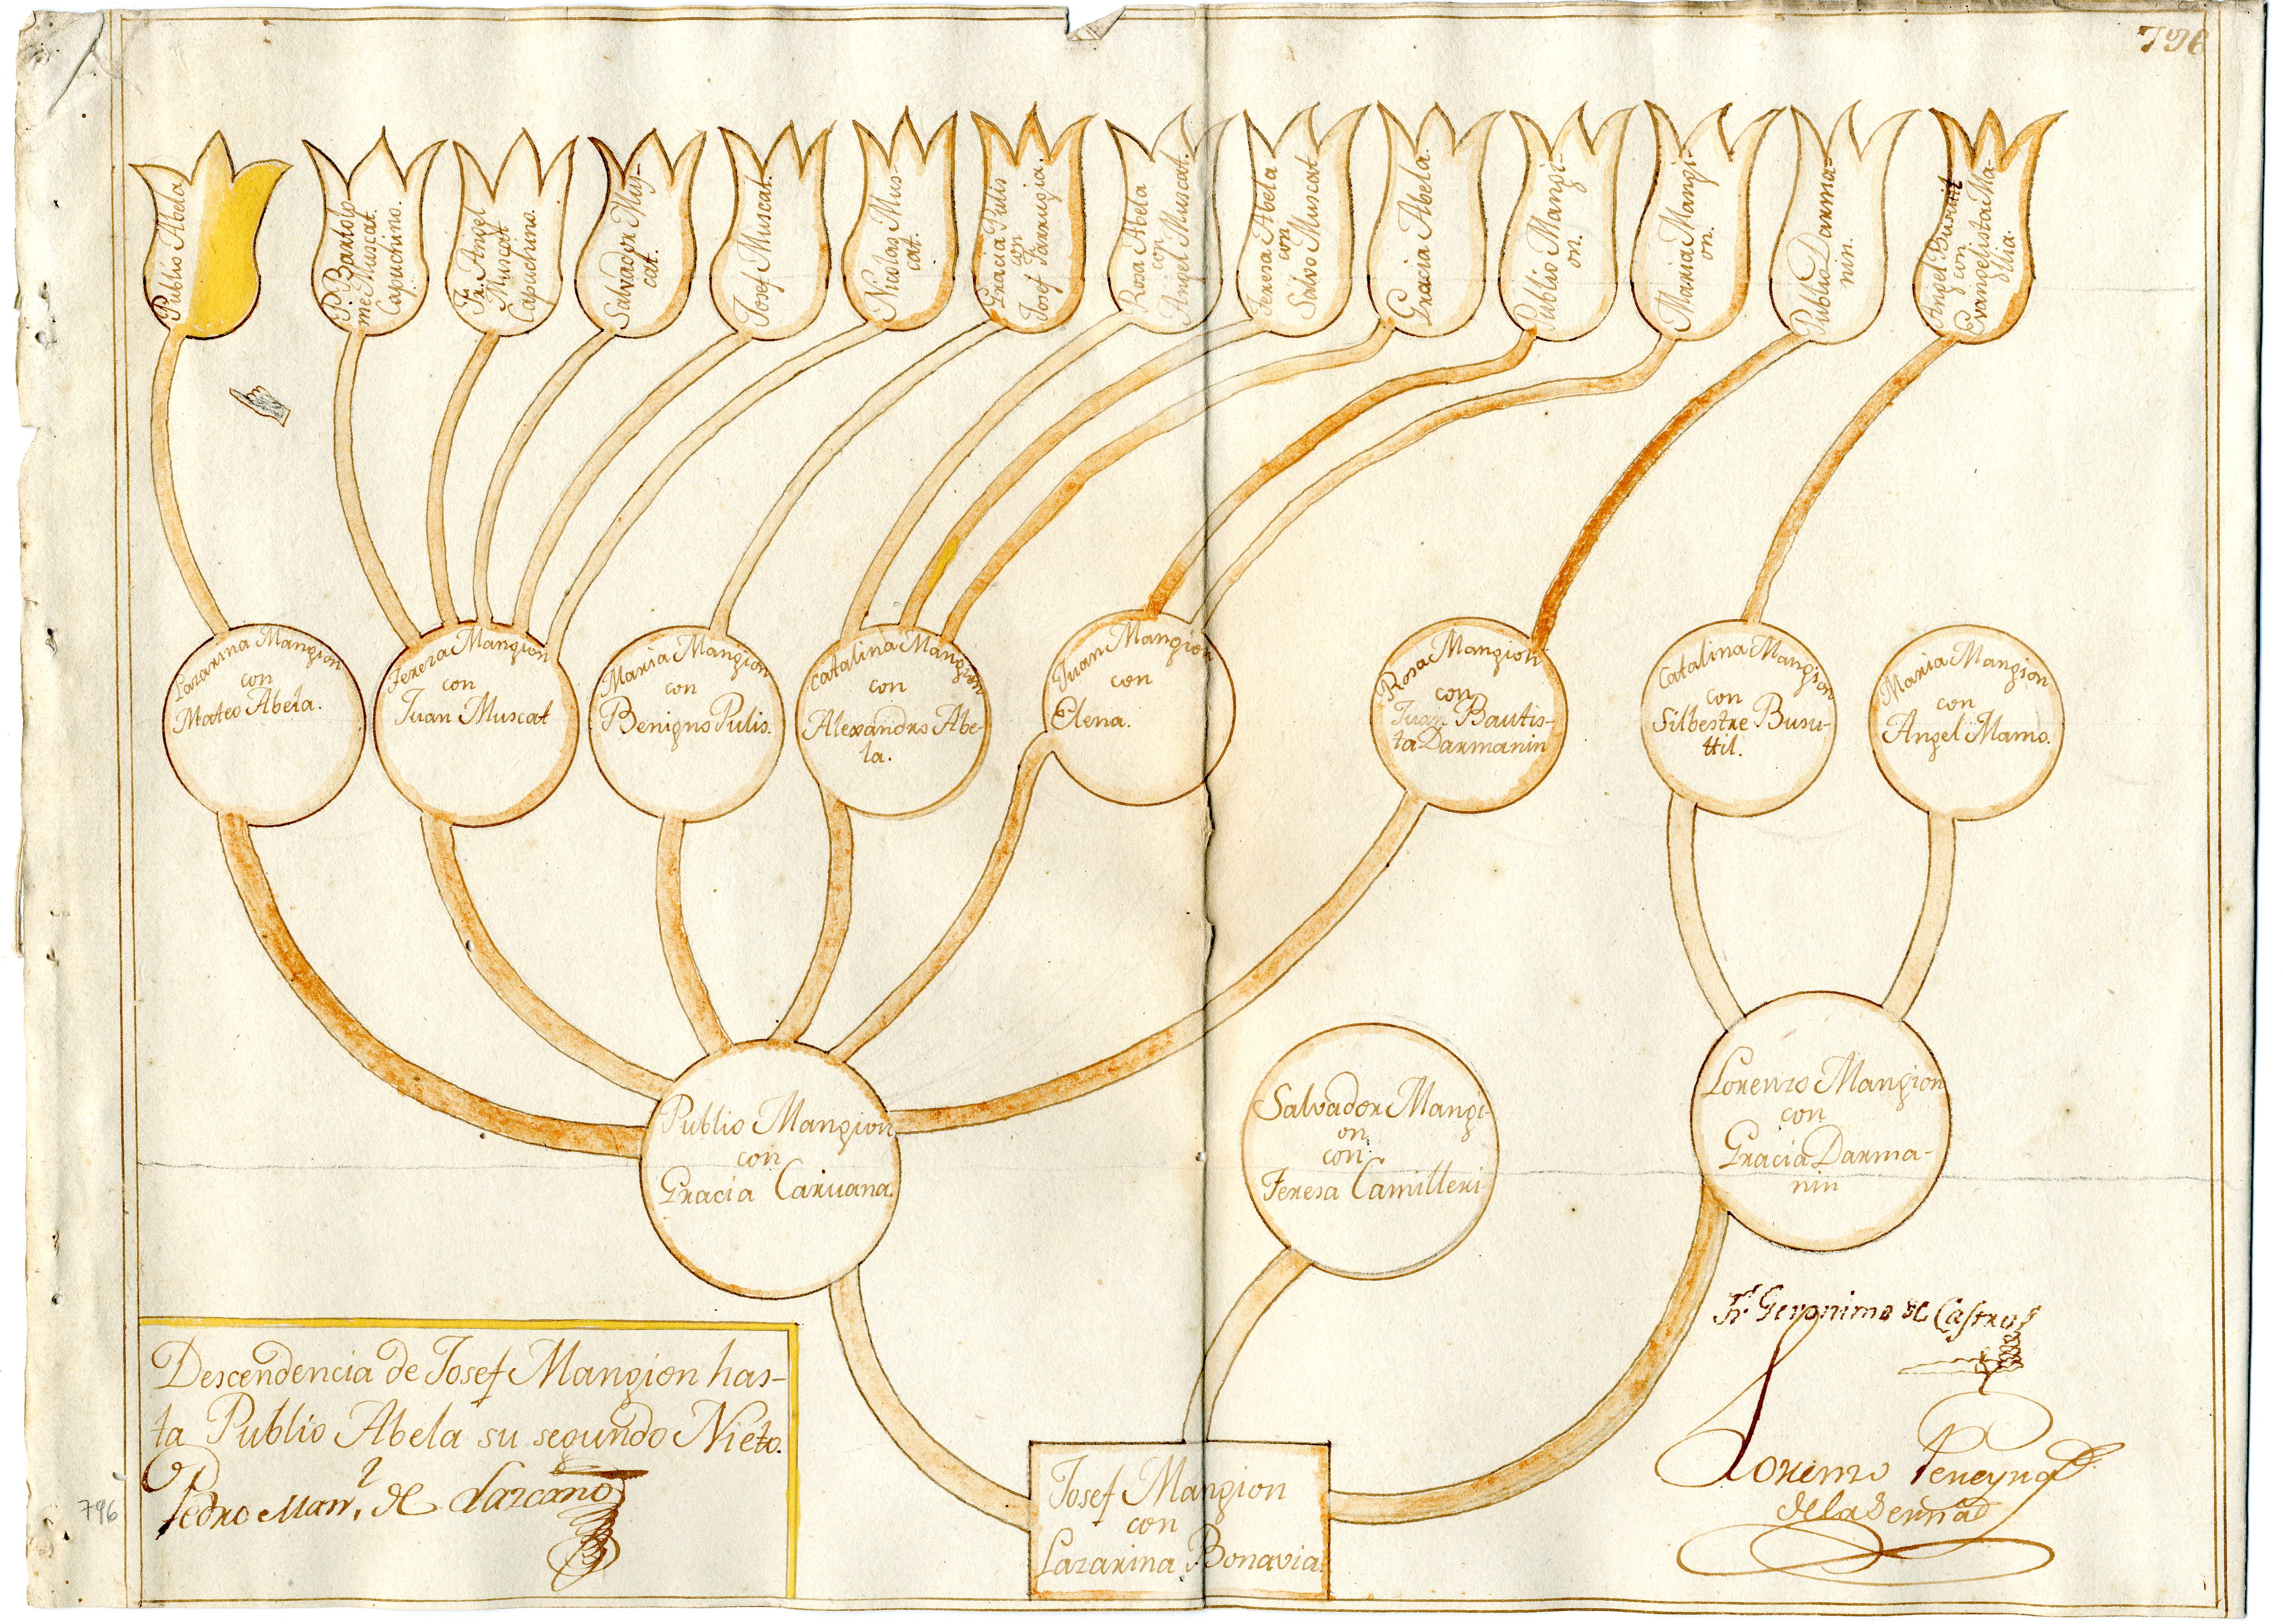 796
Publio Abela
P. Bartolo-
me Muscat.
Capuchino.
Fr. Angel
Muscat
Capuchino.
Salvador Mus-
cat.
Josef Muscat.
Nicolas Mus-
cat.
Gracia Pulis
con
Josef Farrugia.
Rosa Abela
con
Angel Muscat.
Teresa Abela
con
Salvo Muscat
Gracia Abela.
Publio Mangi-
on.
Maria Mangi-
on.
Publio Darma-
nin.
Angel Busuttil
con
Evangelista Ma-
llia.
Lazarina Mangion
con
Mateo Abela.
Tereza Mangion
con
Juan Muscat
Maria Mangion
con
Benigno Pulis.
Catalina Mangion
con
Alexandro Abe-
la.
Juan Mangion
con
Elena.
Rosa Mangion
con
Juan Bautis-
ta Darmanin
Catalina Mangion
con
Silbestre Busu-
ttil.
Maria Mangion
con
Angel Mamo.
Publio Mangion
con
Gracia Caruana.
Salvador Mangi-
on
con
Teresa Camilleri
Lorenzo Mangion
con
Gracia Darma-
nin
Josef Mangion
con
Lazarina Bonavia.
Descendencia de Josef Mangion has-
ta Publio Abela su segundo Nieto.
Pedro Man.l de Lazcano
796
Fr. Geronimo de Castro
Lorenzo
de la Serna